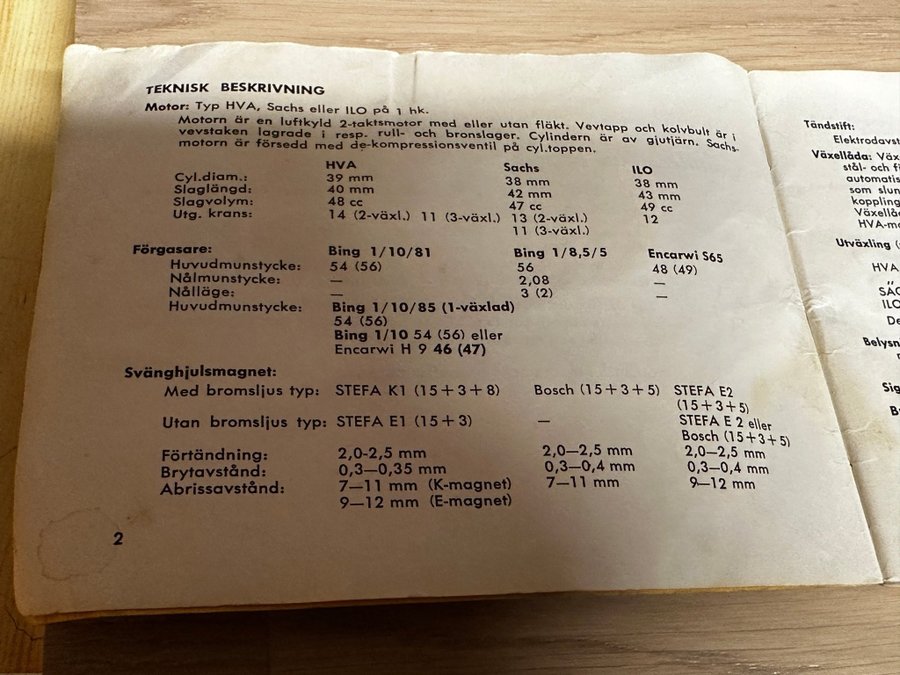 TEKNISK BESKRIVNING
Motor: Typ HVA, Sachs eller ILO på 1 hk.
Motorn är en luftkyld 2-taktsmotor med eller utan fläkt. Vevtapp och kolvbult är i
vevstaken lagrade i resp. rull- och bronslager. Cylindern är av gjutjärn. Sachs-
motorn är försedd med de-kompressionsventil på cyl.toppen.
HVA Sachs ILO
Cyl.diam.: 39 mm 38 mm 38 mm
Slaglängd: 40 mm 42 mm 43 mm
Slagvolym: 48 cc 47 cc 49 cc
Utg. krans: 14 (2-växl.) 11 (3-växl.) 13 (2-växl.) 12
11 (3-växl.)
Förgasare: Bing 1/10/81 Bing 1/8,5/5 Encarwi S65
Huvudmunstycke: 54 (56) 56 48 (49)
Nålmunstycke: — 2,08 —
Nålläge: — 3 (2) —
Huvudmunstycke: Bing 1/10/85 (1-växlad)
54 (56)
Bing 1/10 54 (56) eller
Encarwi H 9 46 (47)
Svänghjulsmagnet:
Med bromsljus typ: STEFA K1 (15+3+8) Bosch (15+3+5) STEFA E2
(15+3+5)
Utan bromsljus typ: STEFA E1 (15+3) — STEFA E 2 eller
Bosch (15+3+5)
Förtändning: 2,0-2,5 mm 2,0—2,5 mm 2,0—2,5 mm
Brytavstånd: 0,3—0,35 mm 0,3—0,4 mm 0,3—0,4 mm
Abrissavstånd: 7—11 mm (K-magnet) 7—11 mm 9—12 mm
9—12 mm (E-magnet)
2
Tändstift:
Elektrodavst
Växellåda: Väx
stål- och f
automatis
som slun
koppling
Växellå
HVA-mo
Utväxling (
HVA
„
SAC
ILO
De
Belysn
Sig